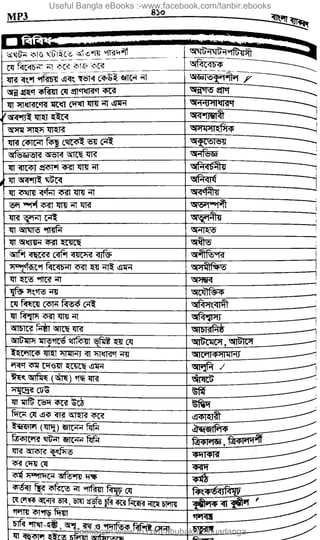 Useful Bangla eBooks :-www.facebook.com/tanbir.ebooks
MP3 ৪১০ বাংলা ব্যাকরণ
বিবিধ
অঘটন ঘটাইতে অতিশয় পারদর্শী অঘটনঘটনপটিয়সী
যে বিবেচনা না করে কাজ করে অবিবেচক
যার বংশ পরিচয় এবং স্বভাব কেউই জানে না অজ্ঞাতকুলশীল
অন্ন গ্রহণ করিয়া যে প্রাণধারণ করে অন্নগত প্রাণ
যা সাধারণের মধ্যে দেখা যায় না এমন অনন্যসাধারণ
অবশ্যই যাহা হইবে অবশ্যম্ভাবী
অসম সাহস যাহার অসমসাহসিক
যার কোনো কিছু থেকেই ভয় নেই অকুতোভয়
অভিজ্ঞতার অভাব আছে যার অনভিজ্ঞ
যা বাক্যে প্রকাশ করা যায় না অনির্বচনীয়
যা অবশ্যই ঘটবে অনিবার্য
যা কথায় বর্ণনা করা যায় না অবর্ণনীয়
তল স্পর্শ করা যায় না যার অতলস্পর্শী
যার তুলনা নেই অতুলনীয়
যা আঘাত পায়নি অনাহত
যা অধ্যয়ন করা হয়েছে অধীত
আশি বছরের বেশি বয়সের ব্যক্তি অশীতিপর
সম্পূর্ণরূপে বিবেচনা করা হয় নাই এমন অসমীক্ষিত
যা হতে পারে না অসম্ভব
যুক্তি সংগত নয় অযৌক্তিক
যে বিষয়ে কোন বিতর্ক নেই অবিসংবাদী
যা বিশ্বাস করা যায় না অবিশ্বাস্য
আচারে নিষ্ঠা আছে যার আচারনিষ্ঠ
আটমাস মাতৃগর্ভে থাকিয়া ভূমিষ্ঠ হয় যে আটমেসে, আটাসে
ইহলোকে যাহা সামান্য বা সাধারণ নয় আলোকসামান্য
লবণ কম দেওয়া হয়েছে এমন আলুনি
ঈষৎ আমিষ (আঁষ) গন্ধ যার আঁষটে
সমুদ্রের ঢেউ ঊর্মি
যা মাটি ভেদ করে উঠে উদ্ভিদ
দিনে যে এক বার আহার করে একাহারী
ইন্দ্রজাল (যাদু) জানেন যিনি ঐন্দ্রজালিক
ত্রিকালের ঘটন জানেন যিনি ত্রিকালজ্ঞ, ত্রিকালদর্শী
যার আকার কুৎসিত কদাকার
কর দেয় যে করদ
কর্ম সম্পাদনে অতিশয় দক্ষ কর্মঠ
কর্তব্য স্থির করিতে না পারিয়া বিমূঢ় যে কিংকর্তব্যবিমূঢ়
গলায় কাপড় দিয়া গলবস্ত্র